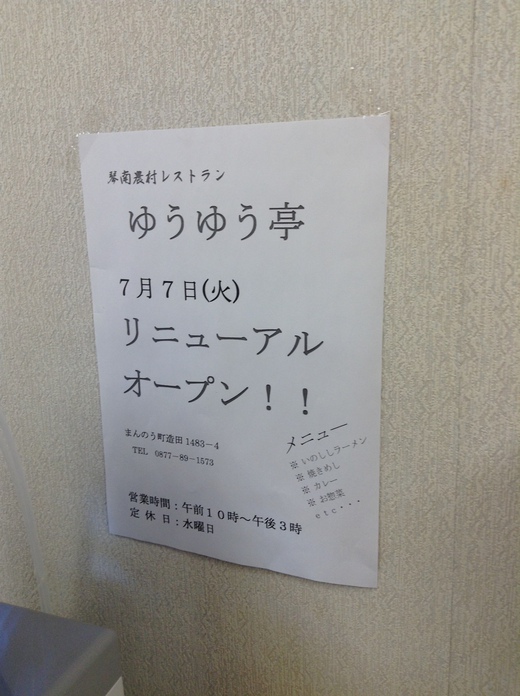 琴南農村レストラン
ゆうゆう亭
7月7日(火)
リニューアル
オープン！！
まんのう町造田1483-4
TEL 0877-89-1573
メニュー
※ いのししラーメン
※ 焼きめし
※ カレー
※ お惣菜
etc・・・
営業時間：午前10時～午後3時
定休日：水曜日